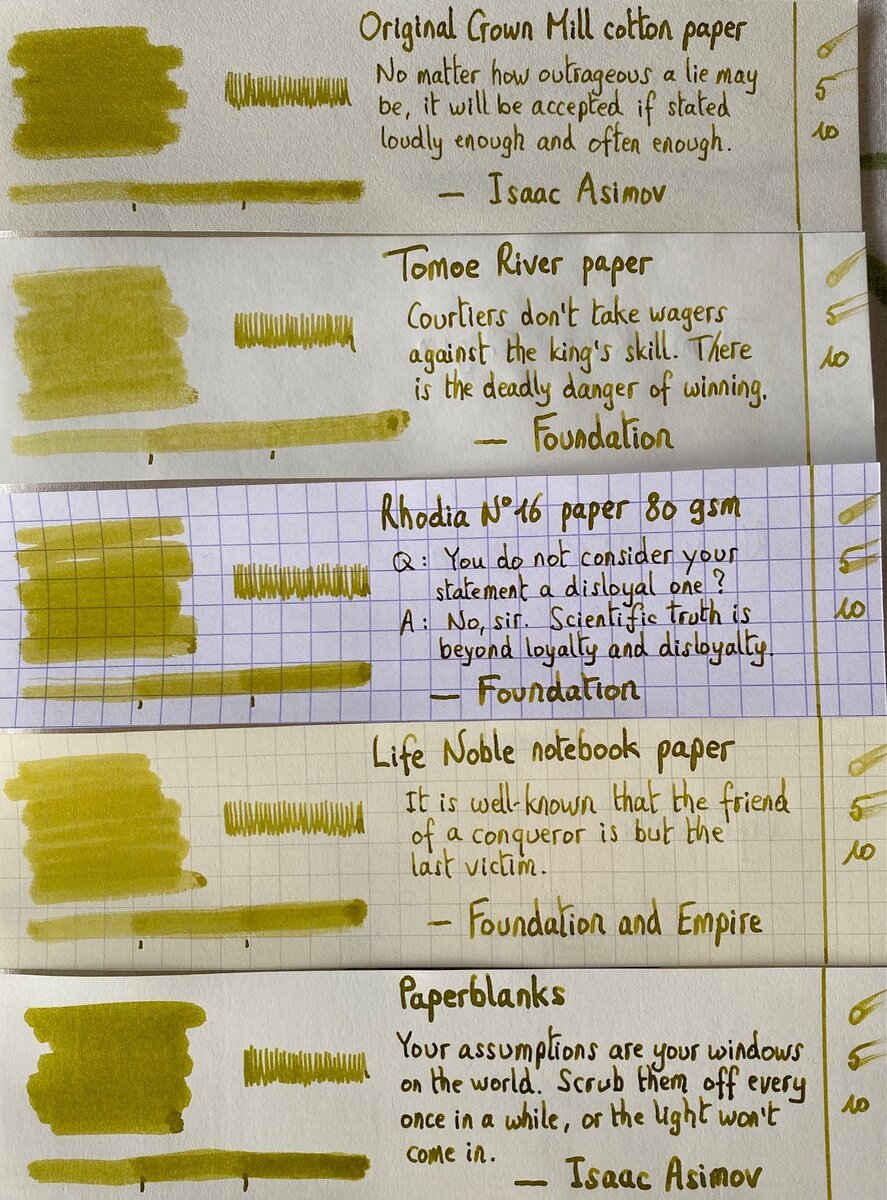 Original Crown Mill cotton paper
No matter how outrageous a lie may
be, it will be accepted if stated
loudly enough and often enough.
— Isaac Asimov
5
10
Tomoe River paper
Courtiers don't take wagers
against the king's skill. There
is the deadly danger of winning.
— Foundation
5
10
Rhodia N°16 paper 80 gsm
Q: You do not consider your
statement a disloyal one?
A: No, sir. Scientific truth is
beyond loyalty and disloyalty.
— Foundation
5
10
Life Noble notebook paper
It is well-known that the friend
of a conqueror is but the
last victim.
— Foundation and Empire
5
10
Paperblanks
Your assumptions are your windows
on the world. Scrub them off every
once in a while, or the light won't
come in.
— Isaac Asimov
5
10